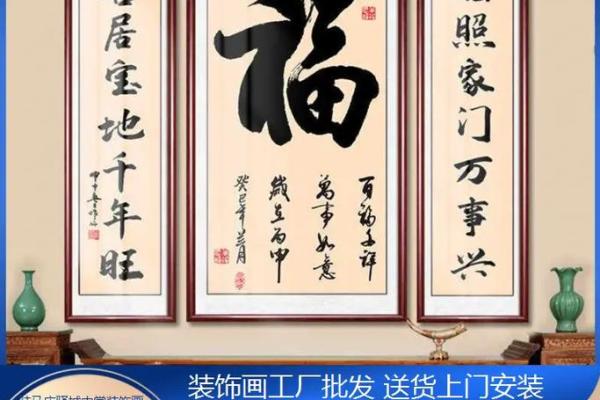 照家门万事兴
福
百福千祥
萬事如意
歲在丙申
居宝地千年旺
装饰画工厂批发 送货上门安装